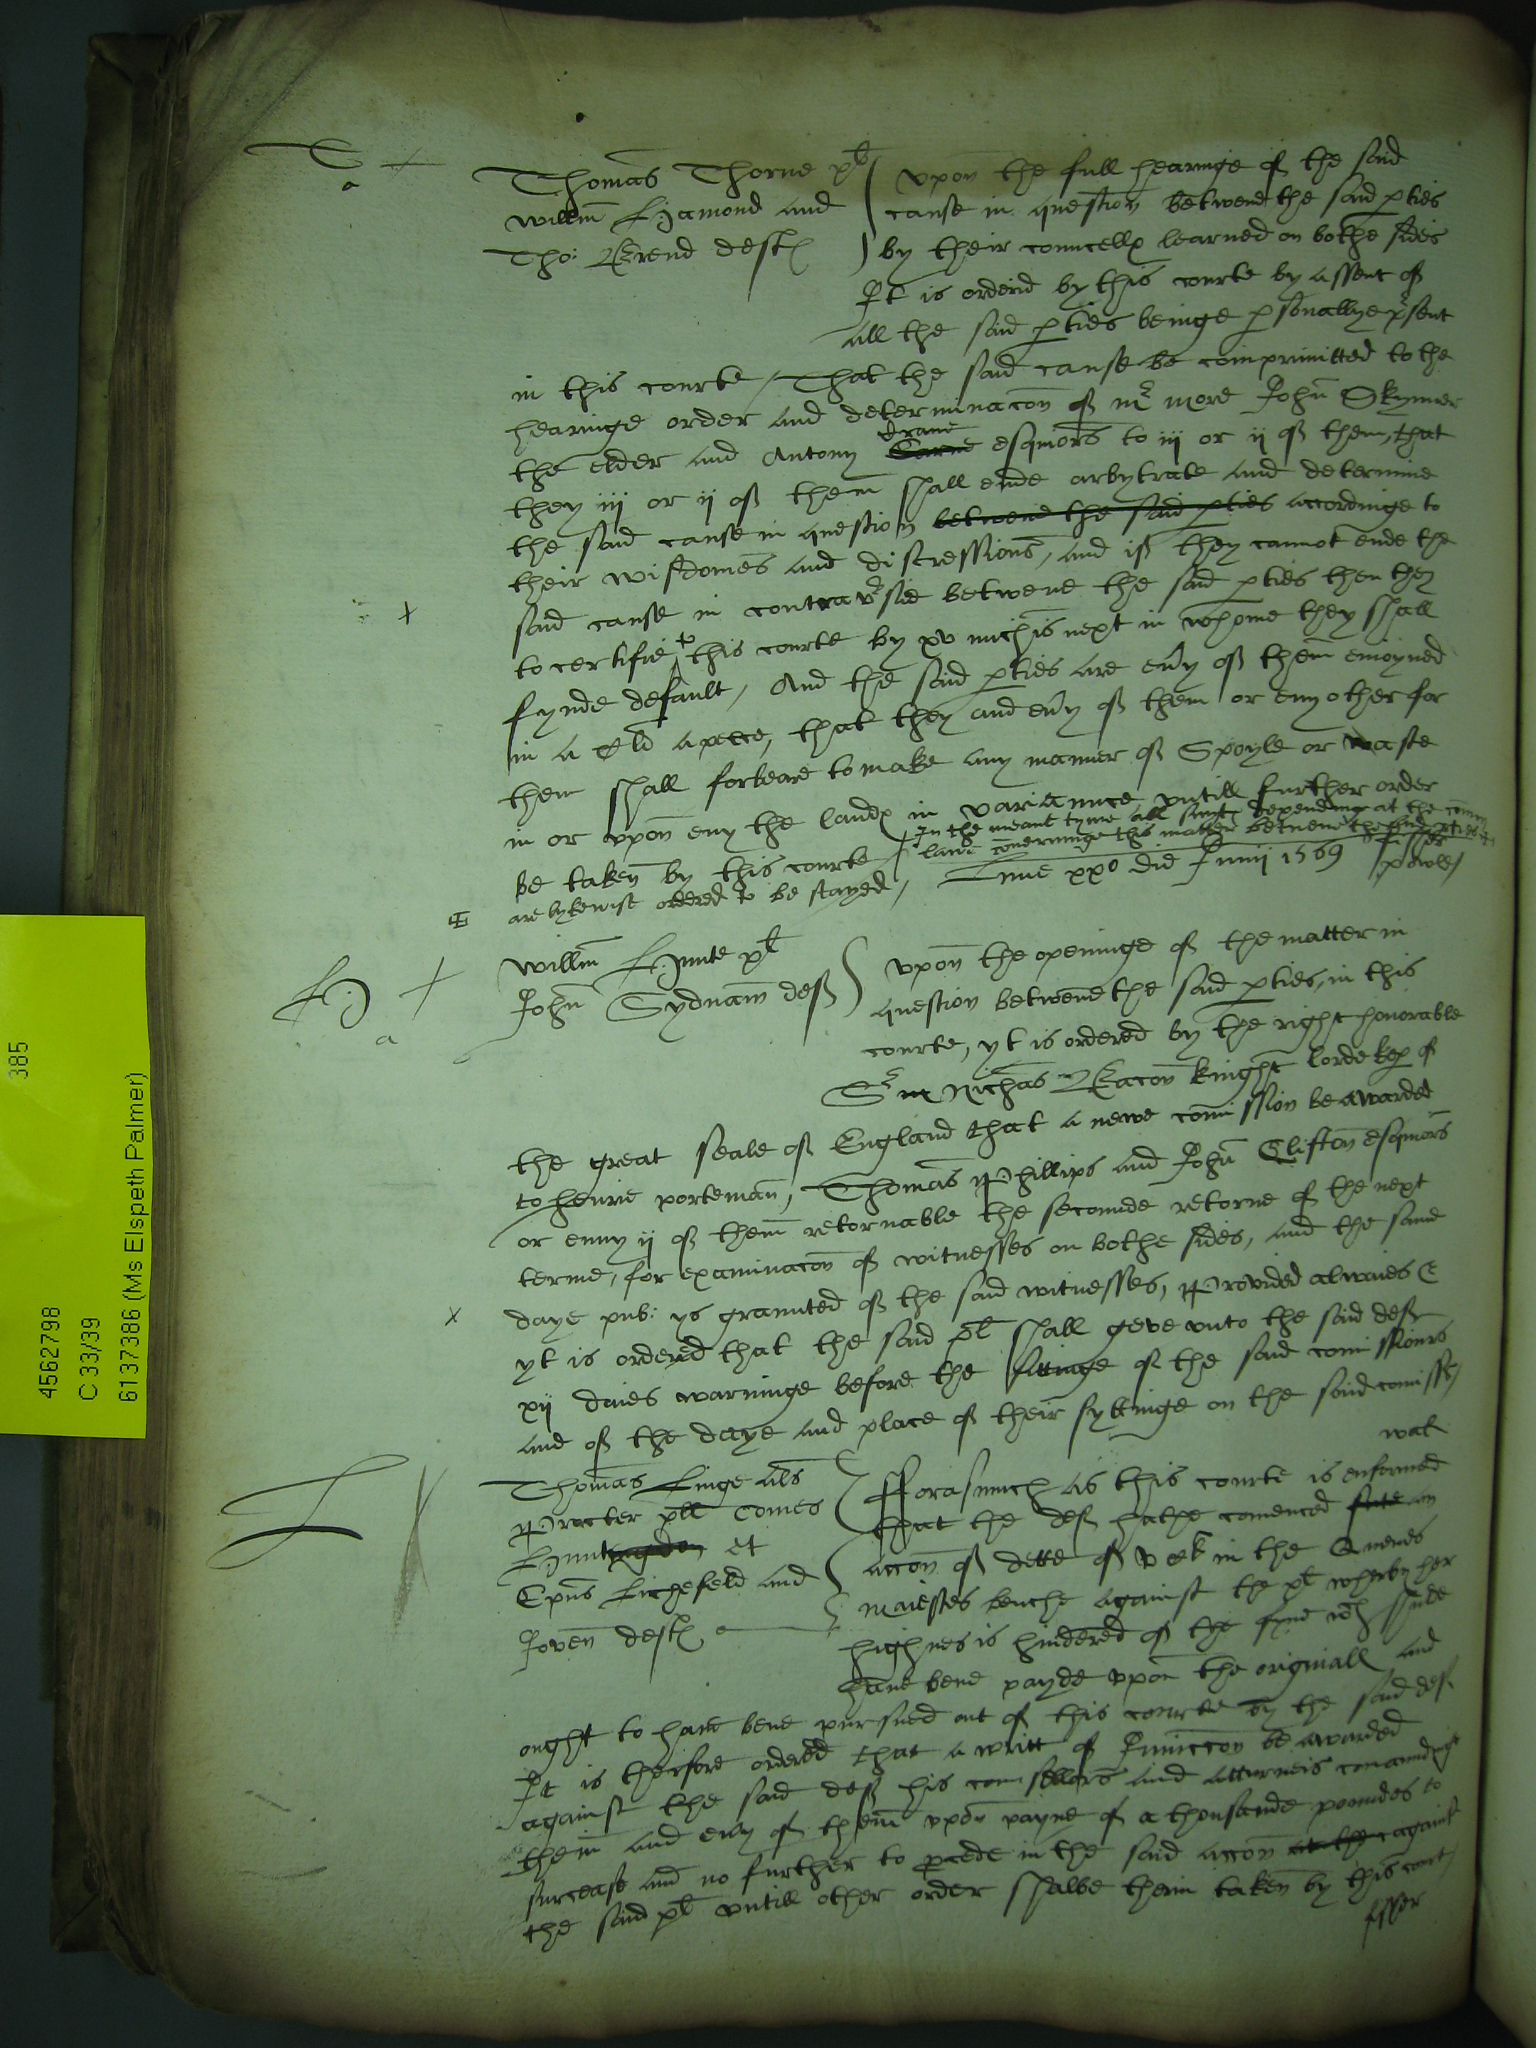 T
a
Thomas Thorne pl
Willm Hamond and
Tho: Brend deft
upon the full hearinge of the said
cause in question betwene the said pties
by their councell learned on bothe sides
It is ordered by this courte by assent of
all the said pties beinge psonallye psent
in this courte / That the said cause be compromitted to the
hearinge order and determinacon of mr more John Skynner
the elder and Antony Crane esquiors to iij or ij of them, that
they iij or ij of them shall ende arbytrate and determine
the said cause in question betwene the said pties accordinge to
their wisdomes and discressions, and if they cannot ende the
said cause in contravsie betwene the said pties then they
x
to certifie to this courte by xv michis next in whome they shall
fynde default, And the said pties are evy of them enioyned
in a C li apece, that they and evy of them or eny other for
them shall forbeare to make any manner of Spoyle or waste
in or upon eny the lands in variaunce untill further order
be taken by this courte
In the meant tyme all suyts depending at the comon
lawe concerninge this matter betwene the said pties
are lykewise ordered to be stayed,
Lune xxo die Junij 1569
powle
H
a
Willm Hunte pl
John Sydnam def
upon the openinge of the matter in
question betwene the said pties, in this
courte, yt is ordered by the right honorable
Sr Nichas Bacon knight lorde kep of
the great seale of England that a newe comission be awarded
to henrie porteman, Thomas Phillips and John Clifton esquiors
or enny ij of them retornable the seconde retorne of the next
terme, for examinacon of witnesses on bothe sides, and the same
x
daye pub: ys graunted of the said witnesses, Provided alwaies &
yt is ordered that the said pl shall geve unto the said def
xij daies warninge before the sittinge of the said comissionrs
and of the daye and place of their syttinge on the said comission
wal
L
Thomas Linge als
Procter pll Comes
Huntingdon et
Epus Lichefeld and
Joven deft
fforasmuch as this courte is enformed
that the def hathe comenced sute an
accon of dette of v C li in the Quenes
maiesties benche against the pl wherby her
highnes is hindered of the fyne wch shulde
have bene payde upon the originall and
ought to have bene pursued out of this courte by the said def
It is therfore ordered that a writt of Iniuccon be awarded
against the said def his counsellors and atturneis comaunding
them and evy of them upon payne of a thousande poundes to
surcease and no further to pcede in the said accon at the against
the said pl untill other order shalbe therin taken by this court
385
4562798
C 33/39
6137386 (Ms Elspeth Palmer)